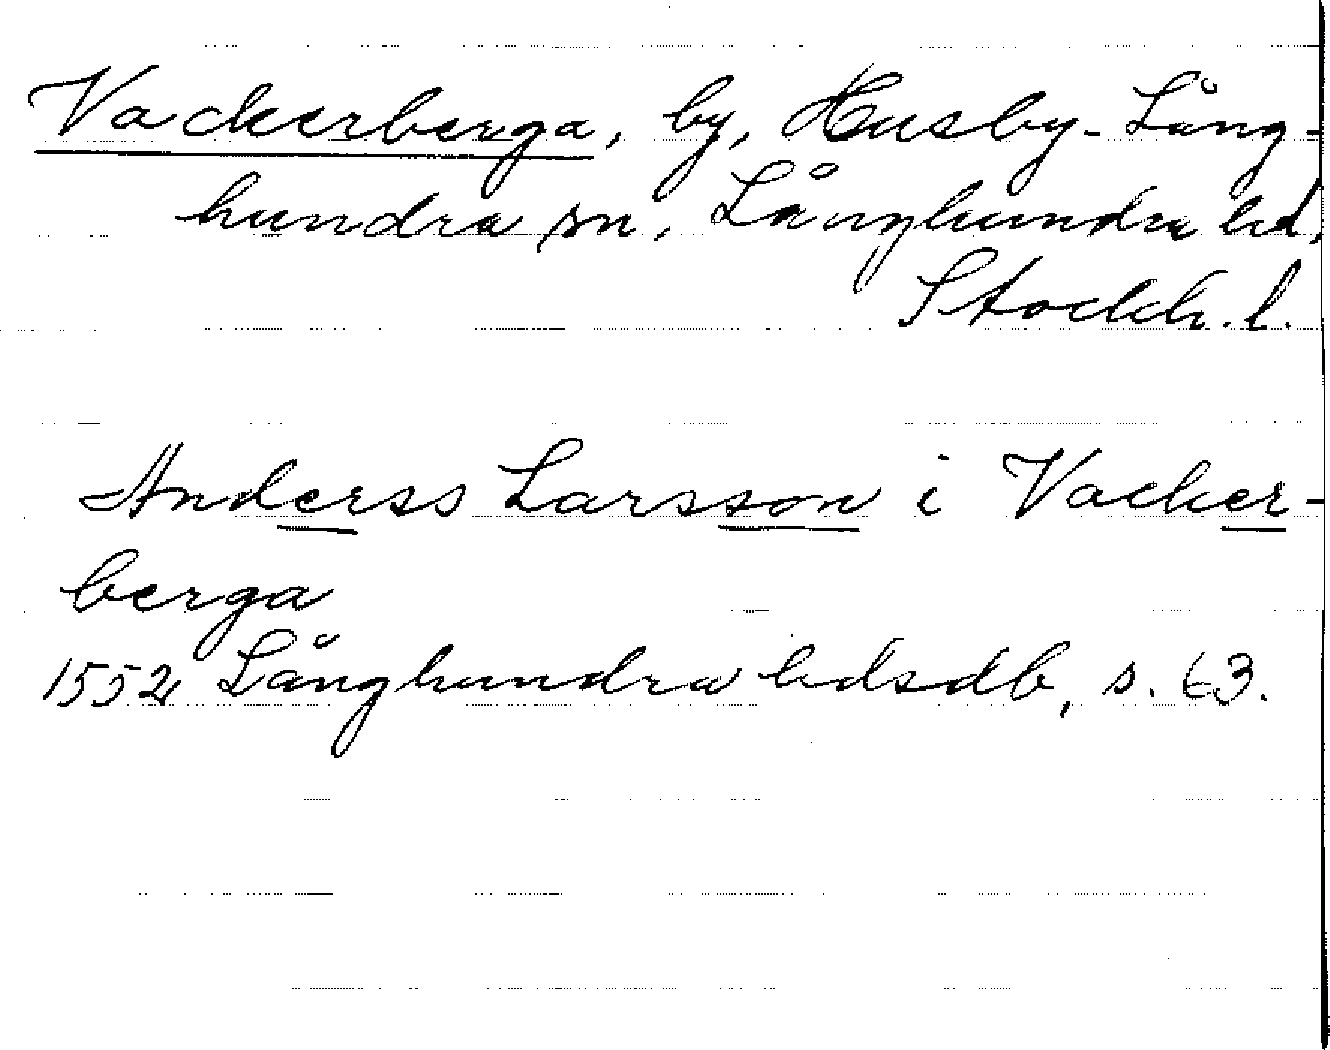 Vackerberga, by, Husby-Lång-
hundra sn, Långhundra hd,
Stockh. l.
Anderss Larsson i Vacker-
berga
1552 Långhundra hdsdb, s. 63.